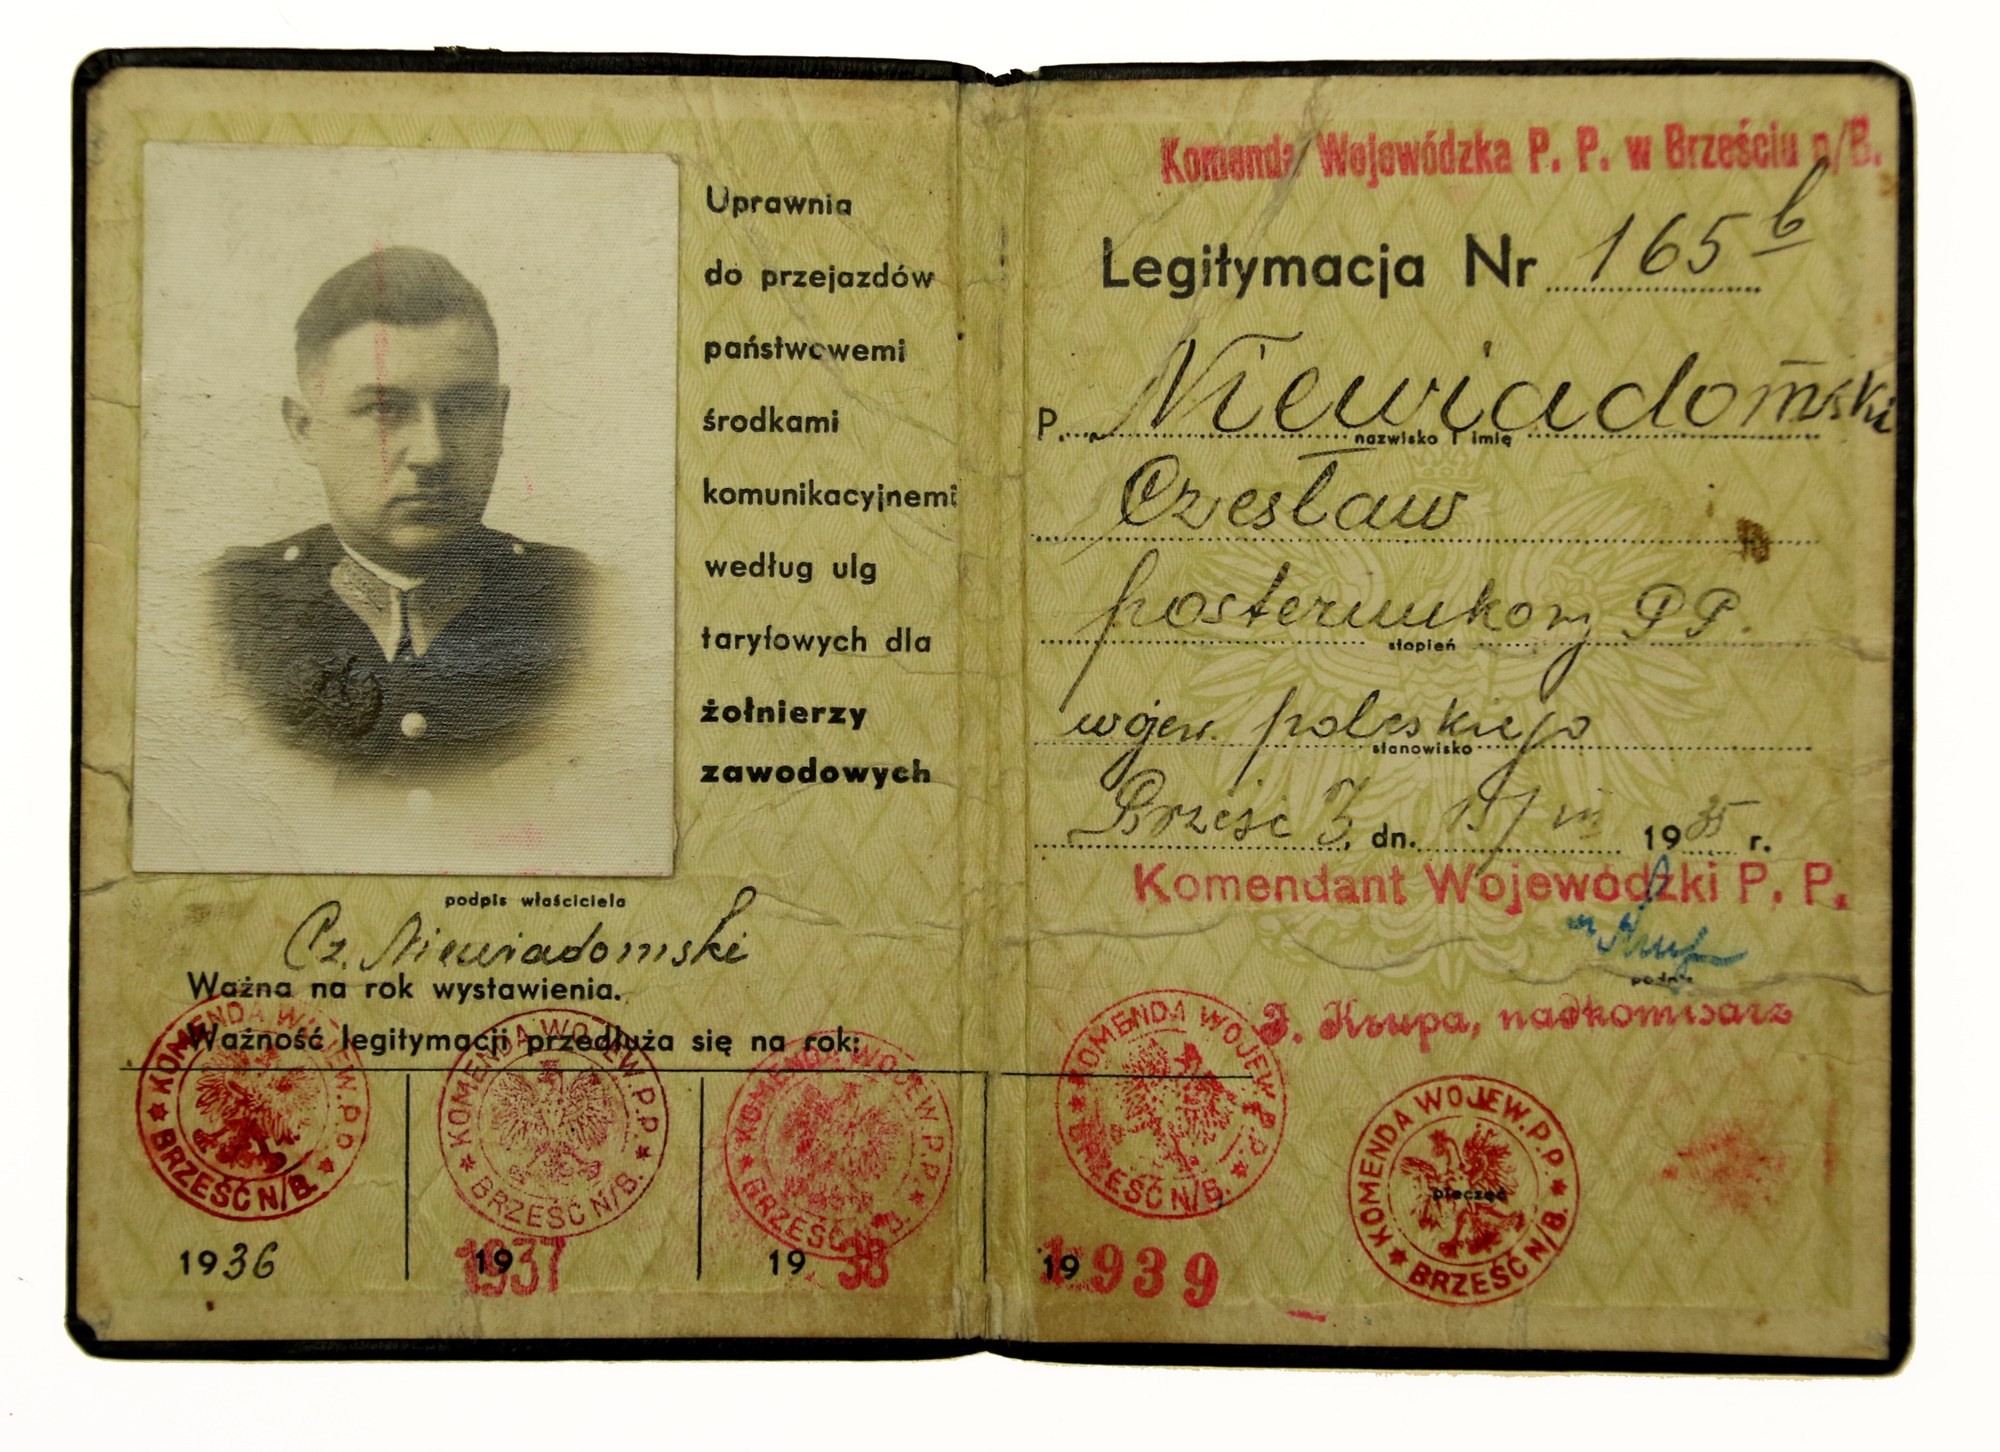 Uprawnia
do przejazdów
państwowemi
środkami
komunikacyjnemi
według ulg
taryfowych dla
żołnierzy
zawodowych
podpis właściciela
Cz. Niewiadomski
Ważna na rok wystawienia.
Ważność legitymacji przedłuża się na rok:
KOMENDA WOJEW. P.P. BRZEŚĆ N/B.
KOMENDA WOJEW. P.P. BRZEŚĆ N/B.
KOMENDA WOJEW. P.P. BRZEŚĆ N/B.
1936
19 1937
19 38
Komenda Wojewódzka P. P. w Brześciu n/B.
Legitymacja Nr 165 b
P. Niewiadomski
nazwisko i imię
Czesław
posterunkowy PP.
stopień
wojew. poleskiego
stanowisko
Brześć dn. 19 35 r.
Komendant Wojewódzki P. P.
podpis
J. Krupa, nadkomisarz
KOMENDA WOJEW. P.P. BRZEŚĆ N/B.
KOMENDA WOJEW. P.P. BRZEŚĆ N/B.
pieczęć
19 939